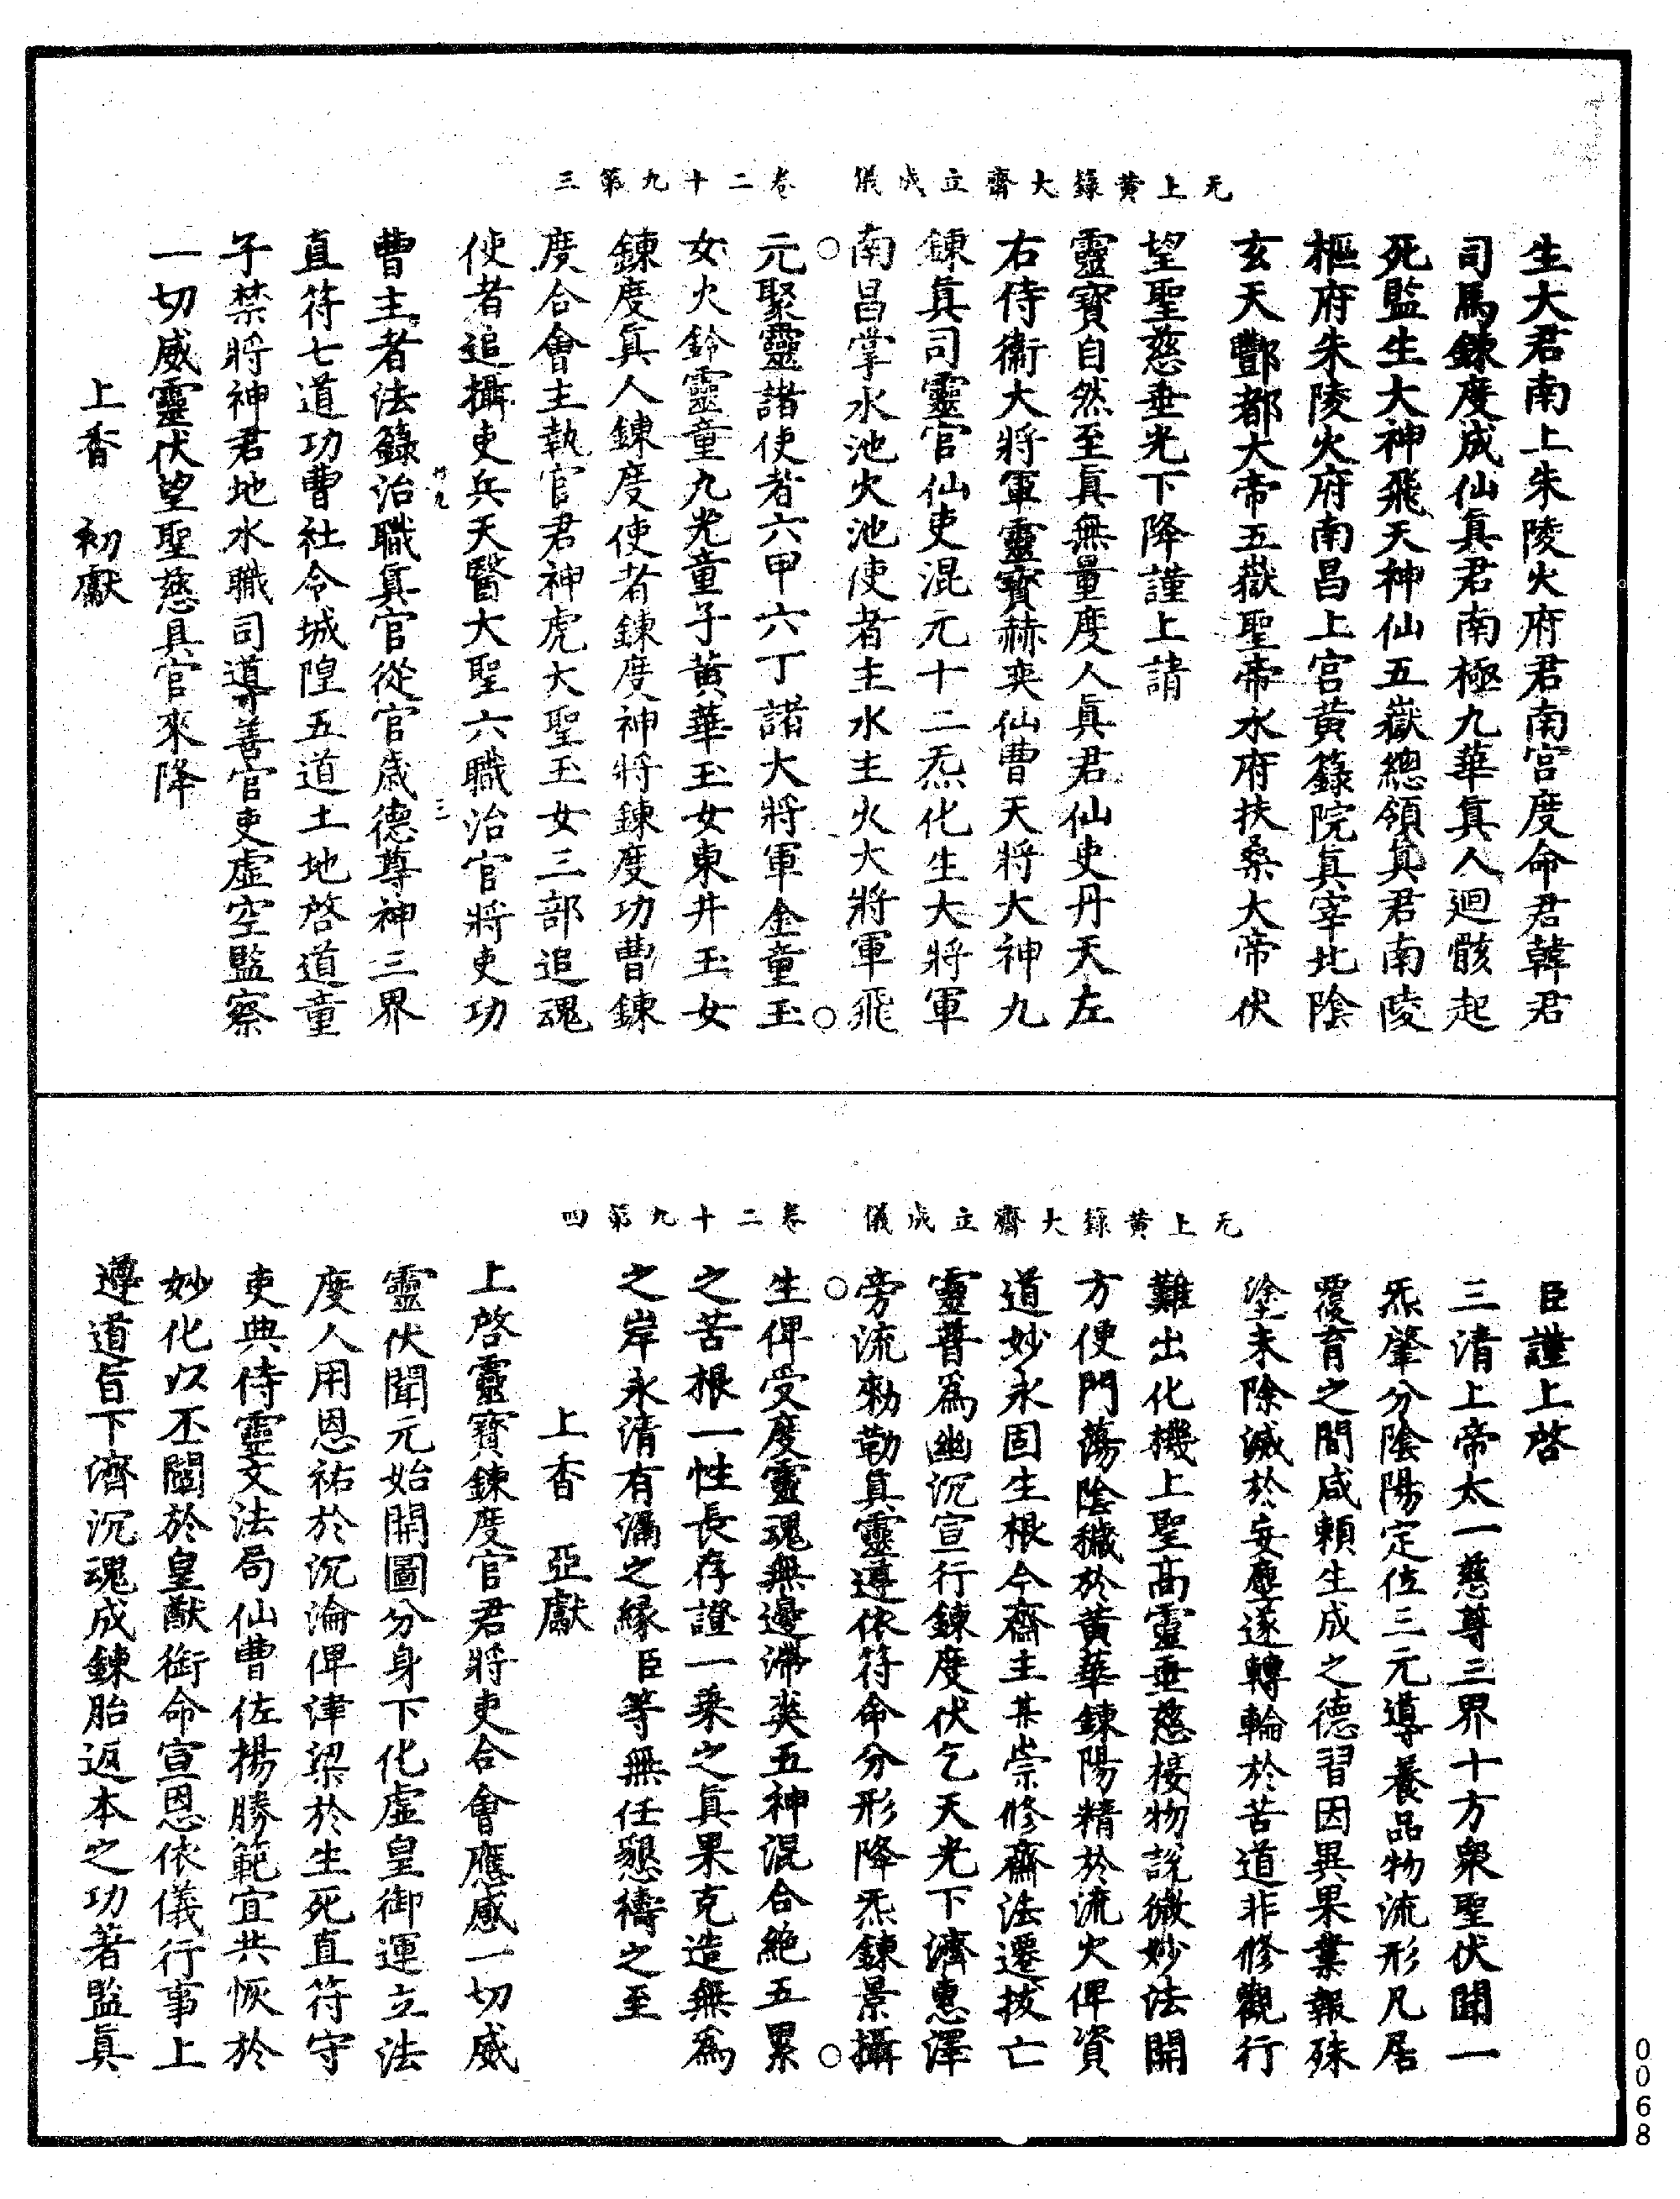 无上黃錄大齋立成儀　卷二十九第三
生大君南上朱陵火府君南宮度命君韓君
司馬鍊度成仙真君南極九華真人迴骸起
死監生大神飛天神仙五嶽總領真君南陵
樞府朱陵火府南昌上宮黃籙院真宰北陰
玄天酆都大帝五嶽聖帝水府扶桑大帝伏
望聖慈垂光下降謹上請
靈寶自然至真無量度人真君仙吏丹天左
右侍衞大將軍靈寶赫奕仙曹天將大神九
鍊真司靈官仙吏混元十二炁化生大將軍
南昌掌水池火池使者主水主火大將軍飛
元聚靈諸使者六甲六丁諸大將軍金童玉
女火鈴靈童九光童子黃華玉女東井玉女
鍊度真人鍊度使者鍊度神將鍊度功曹鍊
度合會主執官君神虎大聖玉女三部追魂
使者追攝吏兵天醫大聖六職治官將吏功
曹主者法籙治職真官從官歲德尊神三界
直符七道功曹社令城隍五道土地啓道童
子禁將神君地水職司導善官吏虛空監察
一切威靈伏望聖慈具官來降
上香　初獻
无上黃籙大齋立成儀　卷二十九第四
臣謹上啓
三清上帝太一慈尊三界十方衆聖伏聞一
炁肇分陰陽定位三元導養品物流形凡居
覆育之間咸賴生成之德習因異果業報殊
塗未除滅於妄塵遂轉輪於苦道非修觀行
難出化機上聖高靈垂慈接物說微妙法開
方便門蕩陰穢於黃華鍊陽精於流火俾資
道妙永固生根今齋主某崇修齋法遷拔亡
靈普爲幽沉宣行鍊度伏乞天光下濟惠澤
旁流勑勒真靈遵依符命分形降炁鍊景攝
生俾受度靈魂無邊滯爽五神混合絶五累
之苦根一性長存證一乗之真果克造無爲
之岸永清有漏之緣臣等無任懇禱之至
上香　亞獻
上啓靈寶鍊度官君將吏合會應感一切威
靈伏聞元始開圖分身下化虛皇御運立法
度人用恩祐於沉淪俾津梁於生死直符守
吏典侍靈文法局仙曹佐揚勝範宜共恢於
妙化以丕闡於皇猷銜命宣恩依儀行事上
遵道旨下濟沉魂成鍊胎返本之功著監真
0068